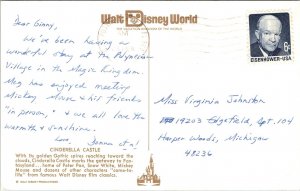 Walt Disney World
THE VACATION KINGDOM OF THE WORLD
Dear Ginny,
We've been having a
wonderful stay at the Polynesian
Village in the Magic Kingdom.
Meg has enjoyed meeting
Mickey Mouse & his friends
"in person," & we all love the
warmth & sunshine.
Love,
CINDERELLA CASTLE
With its golden Gothic spires reaching toward the
clouds, Cinderella Castle marks the gateway to Fan-
tasyland. Some of Peter Pan, Snow White, Mickey
Mouse and dozens of other characters "come-to-
life" from famous Walt Disney film classics.
6¢
EISENHOWER·USA
Miss Virginia Johnston
19203 Edgefield, Apt. 104
Harper Woods, Michigan
48236